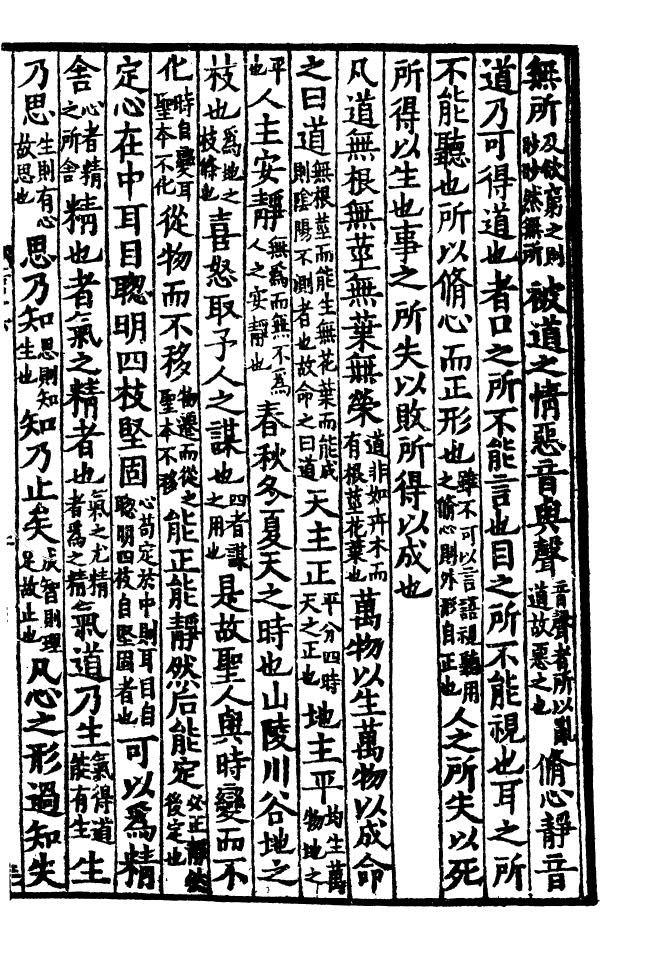 無所及欲窮之則眇眇然無所被道之情惡音與聲音聲者所以亂道故惡之也脩心靜音
道乃可得道也者口之所不能言也目之所不能視也耳之所
不能聽也所以脩心而正形也雖不可以言語視聽用之脩心則外形自正也人之所失以死
所得以生也事之所失以敗所得以成也
凡道無根無莖無葉無榮道非如卉木而有根莖花葉也萬物以生萬物以成命
之曰道無根莖而能生無花葉而能成則陰陽不測者也故命之曰道天主正平分四時天之正也地主平均生萬物地之
平也人主安靜無爲而無不爲人之安靜也春秋冬夏天之時也山陵川谷地之
枝也爲地之枝條也喜怒取予人之謀也四者謀之用也是故聖人與時變而不
化時自變耳聖本不化從物而不移物遷而從之聖本不移能正能靜然后能定必正靜然後定也
定心在中耳目聰明四枝堅固心苟定於中則耳目自聰明四枝自堅固者也可以爲精
舍心者精之所舍精也者氣之精者也氣之尤精者爲之精氣道乃生氣得道能有生生
乃思生則有心故思也思乃知思則知生也知乃止矣成智則理足故止也凡心之形過知失